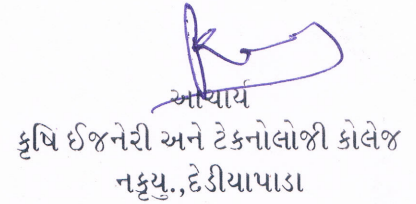 આચાર્ય
કૃષિ ઈજનેરી અને ટેકનોલોજી કોલેજ
નકૃયુ.,દેડીયાપાડા